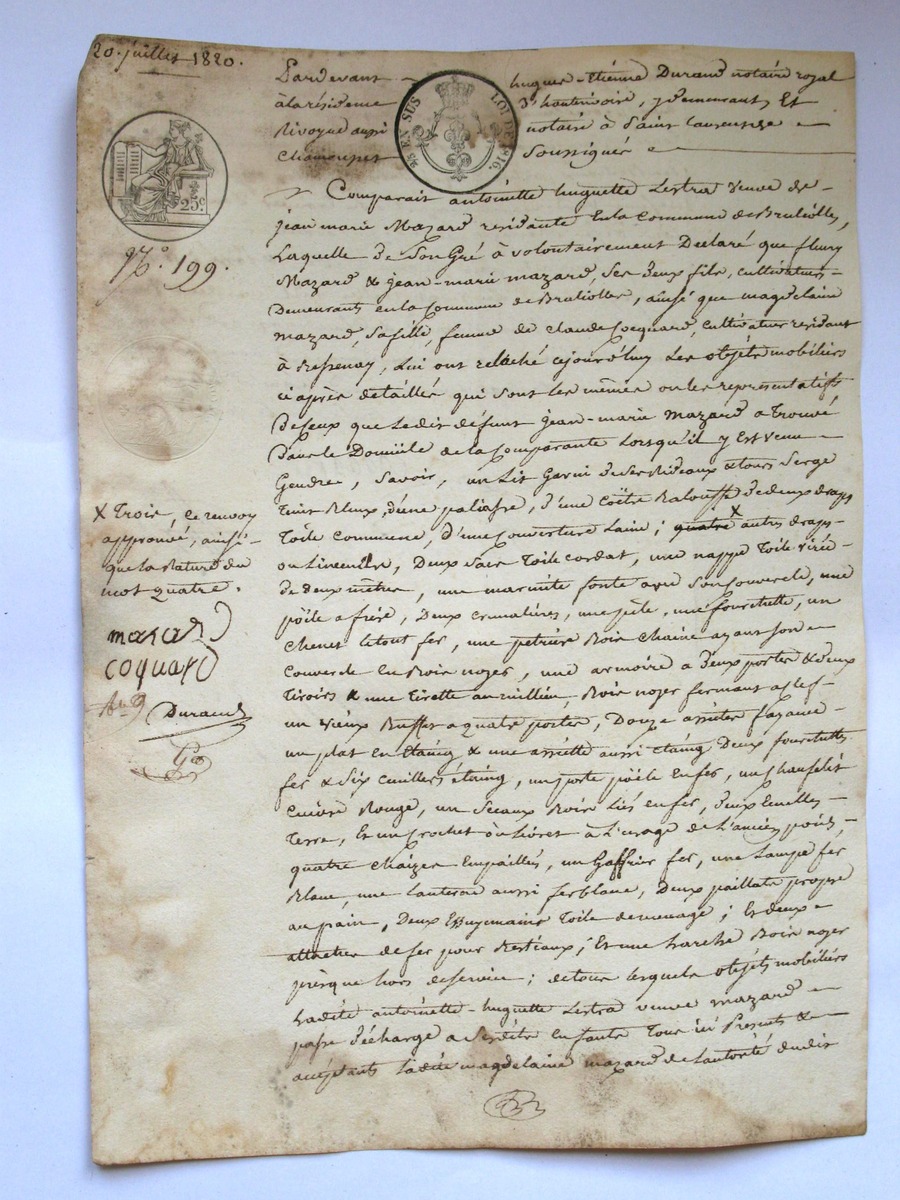 20. juillet 1820.
Pardevant hugues-Etienne Durand notaire royal
à la résidence d'hauterivoire, y demeurant, Et
notaire à Saint laurent de
chamousset Soussigné
EN SUS LOI DE 1816.
25c
N.o 199.
Comparait antoinette huguette Lestra veuve de
jean marie Mazard residante En la Commune de Brulliolles,
Laquelle de Son Gré à volontairement Declaré que fleury
Mazard & jean-marie mazard, Ses deux fils, cultivateurs
Demeurants en la Commune de Brulliolles, ainsi que magdelaine
mazard, Sa fille, femme de claude Cocquard, Cultivateur residant
à , Lui ont relaché cejourd'huy Les objets mobiliers
ci après détaillés qui sont les mêmes ou les représentatifs
De Ceux que Ledit défunt jean-marie Mazard a Trouvé
Dans le Domicile de la Comparante Lorsqu'il y Est venu
Gendre, Savoir, un Lit Garni de Ses Rideaux & tours Serge
Bleux, d'une paliasse, d'une Coëtre de deux draps
Toile Commune, d'une Couverture Laine; quatre X autres draps
ou Linceuils, Deux Sacs Toile cordat, une nappe Toile
de deux mètres, une marmite fonte avec Son Couvercle, une
pöële a frire, Deux Cremalières, une pèle, une fourchette, un
Chenet le tout fer, une petrière Bois Chaine ayant Son
Couvercle En Bois noyer, une armoire a deux portes & deux
Tiroirs & une Tirette au millieu, Bois noyer fermant a clef
un vieux Buffet a quatre portes, Douze assiettes fayance
un plat en Etaing & une assiette aussi Etaing Deux fourchettes
fer & Six cuillers étaing, un porte pöële En fer, un Chauflit
Cuivre Rouge, un Seaux Bois Liés en fer, deux
Terre, Et un crochet à L'usage de L'ancien poids,
quatre chaizes Empaillés, un Gaffrier fer, une Lampe fer
Blanc, une Lanterne aussi ferblanc, Deux paillats propre
au pain, Deux Essuymains Toile de menage; Et deux
attaches de fer pour Bestiaux; Et une harche Bois noyer
presque hors de service; de tous lesquels objets mobiliers
Ladite antoinette-huguette Lestra veuve Mazard
passe décharge a Sesdits enfants Tous ici Presents &
acceptants Ladite magdelaine mazard de Lautorité dudit
X Trois, Ce renvoy
approuvé, ainsi
que la Rature du
mot quatre.
mazard
coquard
Durand